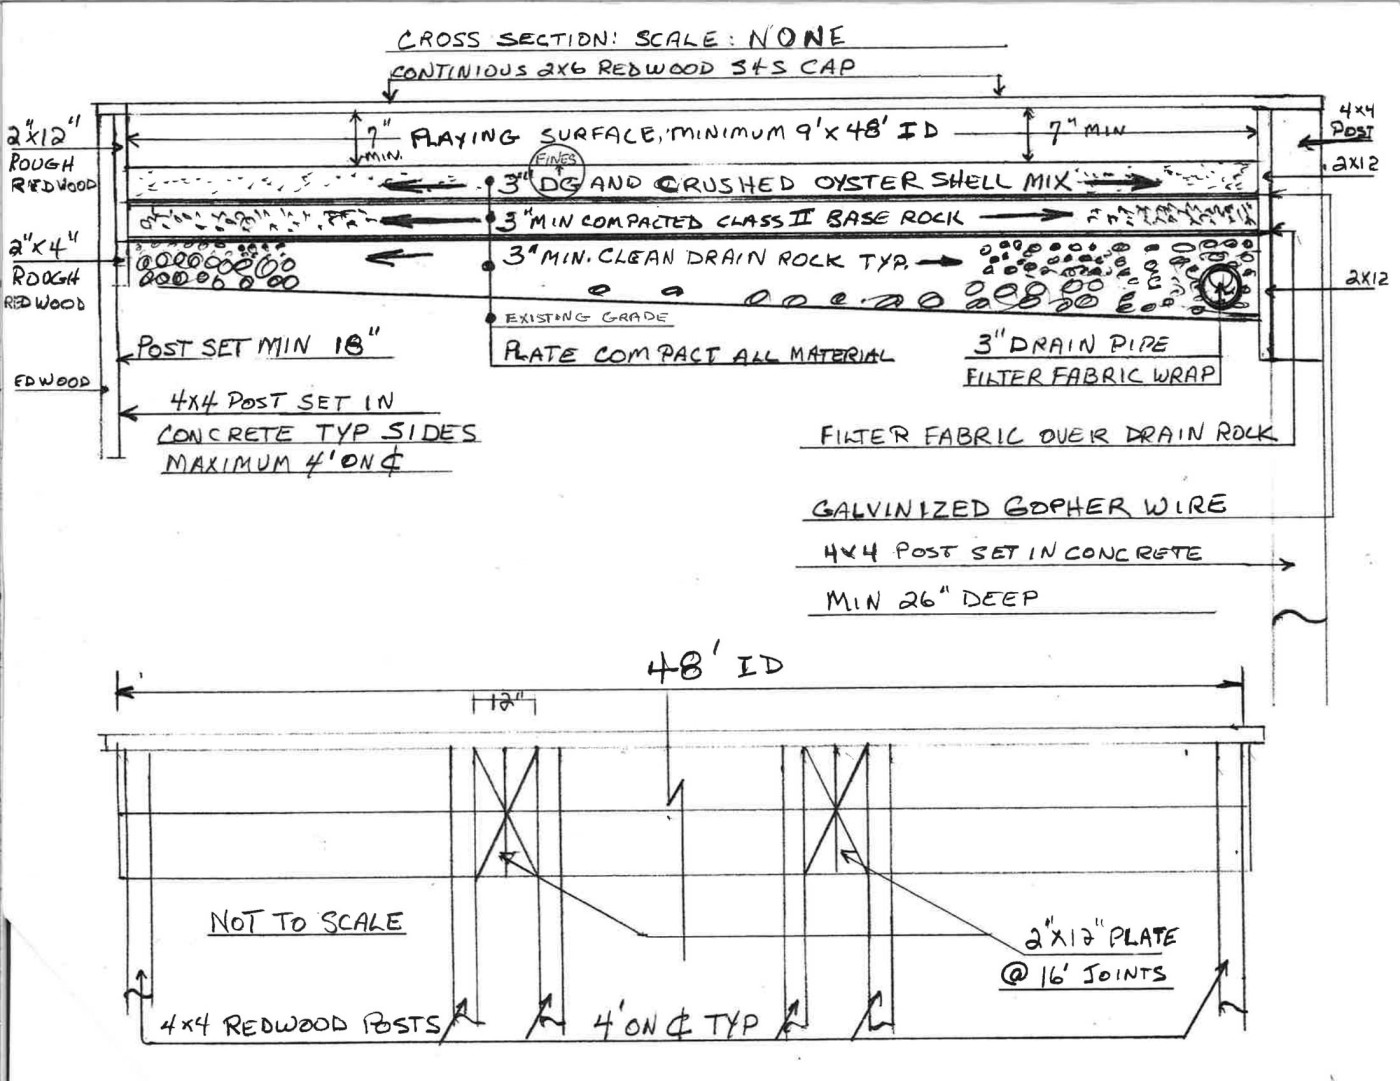 CROSS SECTION: SCALE: NONE
CONTINIOUS 2X6 REDWOOD S4S CAP
2"X12"
ROUGH
REDWOOD
7"
MIN.
PLAYING SURFACE, MINIMUM 9'X48' ID
7" MIN
4X4
POST
2X12
FINES
3" DG AND CRUSHED OYSTER SHELL MIX
3" MIN COMPACTED CLASS II BASE ROCK
2"X4"
ROUGH
REDWOOD
3" MIN. CLEAN DRAIN ROCK TYP.
2X12
EXISTING GRADE
PLATE COMPACT ALL MATERIAL
POST SET MIN 18"
3" DRAIN PIPE
FILTER FABRIC WRAP
EDWOOD
4X4 POST SET IN
CONCRETE TYP SIDES
MAXIMUM 4' ON ℄
FILTER FABRIC OVER DRAIN ROCK
GALVINIZED GOPHER WIRE
4X4 POST SET IN CONCRETE
MIN 26" DEEP
48' ID
12"
NOT TO SCALE
2"X12" PLATE
@ 16' JOINTS
4X4 REDWOOD POSTS
4' ON ℄ TYP